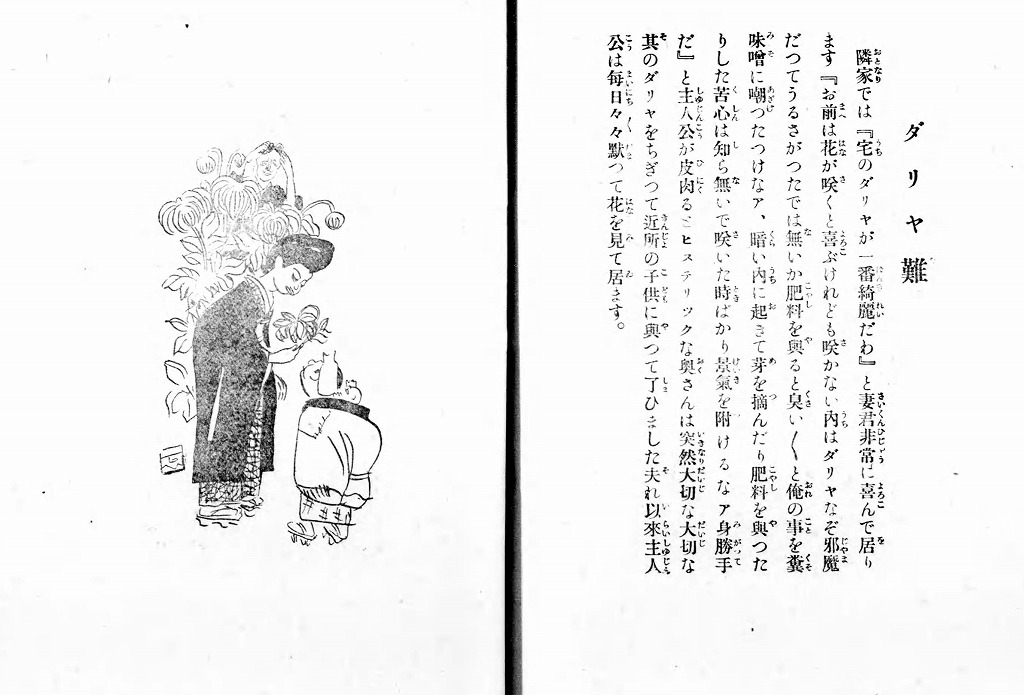 ダリヤ難
隣家では『宅のダリヤが一番綺麗だわ』と妻君非常に喜んで居り
ます『お前は花が咲くと喜ぶけれども咲かない內はダリヤなぞ邪魔
だつてうるさがつたでは無いか肥料を與ると臭い〱と俺の事を糞
味噌に嘲つたつけなア、暗い內に起きて芽を摘んだり肥料を與つた
りした苦心は知ら無いで咲いた時ばかり景氣を附けるなア身勝手
だ』と主人公が皮肉るとヒステリックな奧さんは突然大切な大切な
其のダリヤをちぎつて近所の子供に與つて了ひました夫れ以來主人
公は每日々々默つて花を見て居ます。